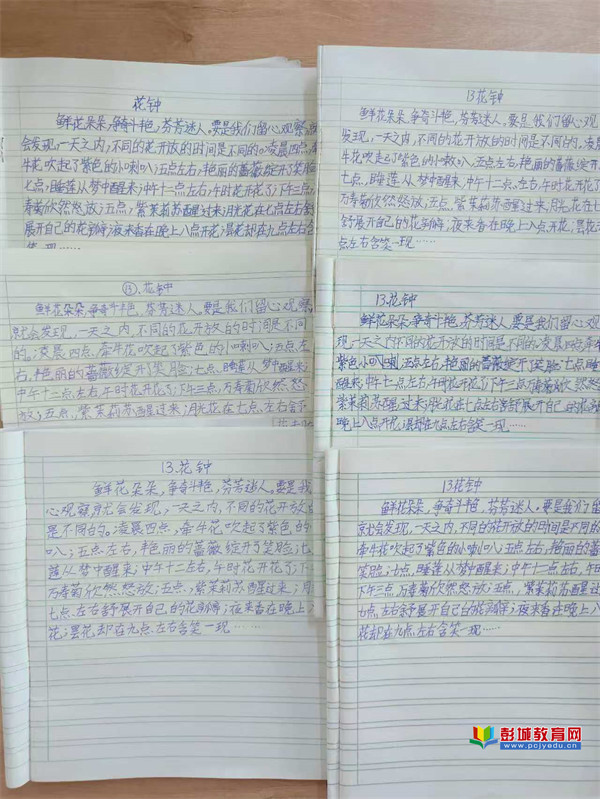 花钟
鲜花朵朵,争奇斗艳,芬芳迷人。要是我们留心观察,就
会发现,一天之内,不同的花开放的时间是不同的。凌晨四点,牵
牛花吹起了紫色的小喇叭;五点左右,艳丽的蔷薇绽开了笑脸;
七点,睡莲从梦中醒来;中午十二点左右,午时花开花了;下午三点,万
寿菊欣然怒放;五点,紫茉莉苏醒过来;月光花在七点左右舒
展开自己的花瓣;夜来香在晚上八点开花;昙花却在九点左右含
笑一现……
13花钟
鲜花朵朵,争奇斗艳,芬芳迷人。要是我们留心观
发现,一天之内,不同的花开放的时间是不同的。凌晨四点,
牛花吹起了紫色的小喇叭;五点左右,艳丽的蔷薇绽开
七点,睡莲从梦中醒来;中午十二点左右,午时花开花了;
万寿菊欣然怒放;五点,紫茉莉苏醒过来;月光花在七
舒展开自己的花瓣;夜来香在晚上八点开花;昙花
点左右含笑一现……
⑬.花钟
鲜花朵朵,争奇斗艳,芬芳迷人。要是我们留心观察,
就会发现,一天之内,不同的花开放的时间是不同
的。凌晨四点,牵牛花吹起了紫色的小喇叭;五点左
右,艳丽的蔷薇绽开了笑脸;七点,睡莲从梦中醒来;
中午十二点左右,午时花开花了;下午三点,万寿菊欣然怒
放;五点,紫茉莉苏醒过来;月光花在七点左右舒
13.花钟
鲜花朵朵,争奇斗艳,芬芳迷人。要是我们留心观
现,一天之内,不同的花开放的时间是不同的凌晨四点牵牛
紫色小喇叭;五点左右,艳丽的蔷薇绽开了笑脸;七点睡
醒来;中午十二点左右,午时花开花了;下午三点万寿菊欣然怒
紫茉莉苏醒过来;月光花在七点左右舒展开自己
晚上八点开花;昙花却在九点左右含笑一现……
13.花钟
鲜花朵朵,争奇斗艳,芬芳迷人。要是我
心观察,就会发现,一天之内,不同的花开放的
是不同的。凌晨四点,牵牛花吹起了紫色的
叭;五点左右,艳丽的蔷薇绽开了笑脸;七
莲从梦中醒来;中午十二左右,午时花开花了;下
万寿菊欣然怒放;五点,紫茉莉苏醒过来;月
七点左右舒展开自己的花瓣;夜来香在晚上
花;昙花却在九点左右含笑一现……
13.花钟
鲜花朵朵,争奇斗艳,芬芳迷人。要是我们留
就会发现,一天之内,不同的花开放的时间是不同的
牵牛花吹起了紫色的小喇叭;五点左右,艳丽的蔷薇
笑脸;七点,睡莲从梦中醒来;中午十二点左右,午时
下午三点,万寿菊欣然怒放;五点,紫茉莉苏醒过来;
七点左右舒展开自己的花瓣;夜来香在晚上八
花却在九点左右含笑一现……
彭城教育网
www.pcjyedu.cn